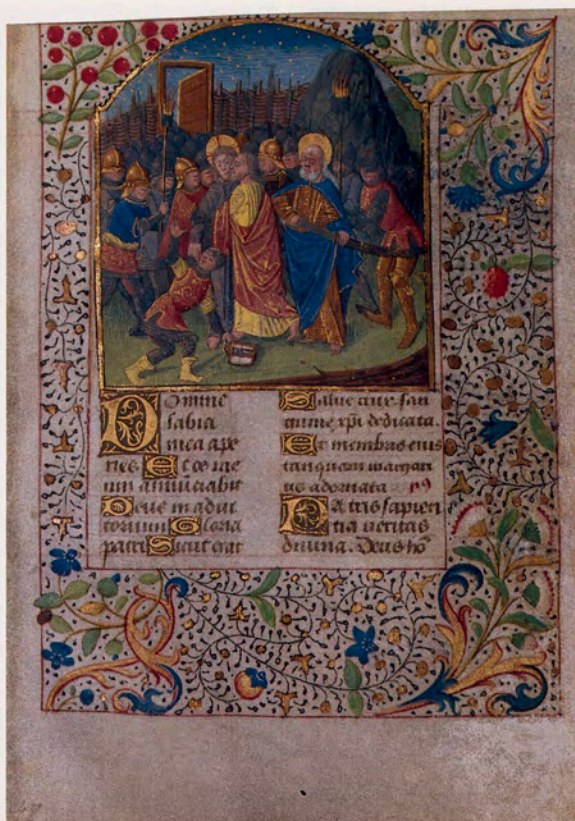 Domine
labia
mea ape
ries Et os me
um annūciabit
Deus in adiut
torium Gloria
patri Sicut erat
Salue crux san
guine xpi dedicata.
Et membris eius
tanquam margari
tis adornata
Patris sapien
tia ueritas
diuina. Deus hō